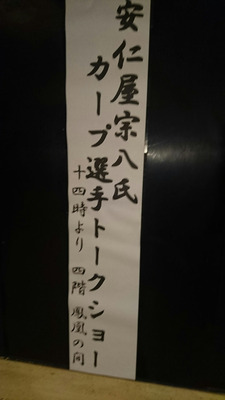 安仁屋宗八氏
カープ選手トークショー
十四時より 四階 鳳凰の間